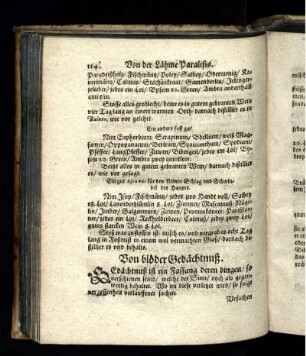 114. Von der Lähme Paralisis.
Paradeißholz/ Fischmüntz/ Poley/ Salbey/ Odermenig/ Ka-
Calmus/ Stechkraut/ Gamenderlin/ Jelenger-
jelieber/ jedes ein Lot/ Bysem 10. Gren/ Ambra anderthalb
quintlin.
Stosse alles gröblecht/ beitze es in gutem gebranten Wein
vier Tag lang an einem warmen Orth/ darnach distillier es in
Balneo, wie vor gelehrt.
Ein anders fast gut.
Nim Euphorbium/ Serapinum/ Bdellium/ weiß Mag-
samen/ Oppopanacum/ Bertram/ Squinanthum/
Pfeffer/ Langpfeffer/ Zitwer/ Bibergeil/ jedes ein Lot/ Bysem
20. Gren/ Ambra zwey quintlein.
Beitze alles in gutem gebranten Wein/ darnach distillier
es/ wie vor gesagt.
Ein gut aqua vitæ für den kleinen Schlag und Schwin-
del des Haupts.
Nim Isop/ Fischmüntz/ jedes zwo Handt voll/ Salbey
12. Lot/ Lavendelblümlin 8. Lot/ Zimmet/ Muscatnuß/ Nägelin/
Imber/ Galgenwurtz/ Zitwer/ Paradißkörner/
jedes ein Lot/ Calmus/ jedes zwey Lot/
gutes starcken Wein 8. Lot.
Stoß was zustossen ist/ misch es/ und vergrab es acht Tag
lang in Roßmist in einem wol vermachten Glaß/ darnach di-
stillier es und behalts.
Von blöder Gedächtnuß.
Gedächtnuß ist ein Fassung deren dingen/ so
verschienen seind/ welche der Sinn/ noch als gegen-
wertig behalten. Wo nu diese verletzt wird/ so folgt
vergessenheit verlauffener sachen.
Ursachen